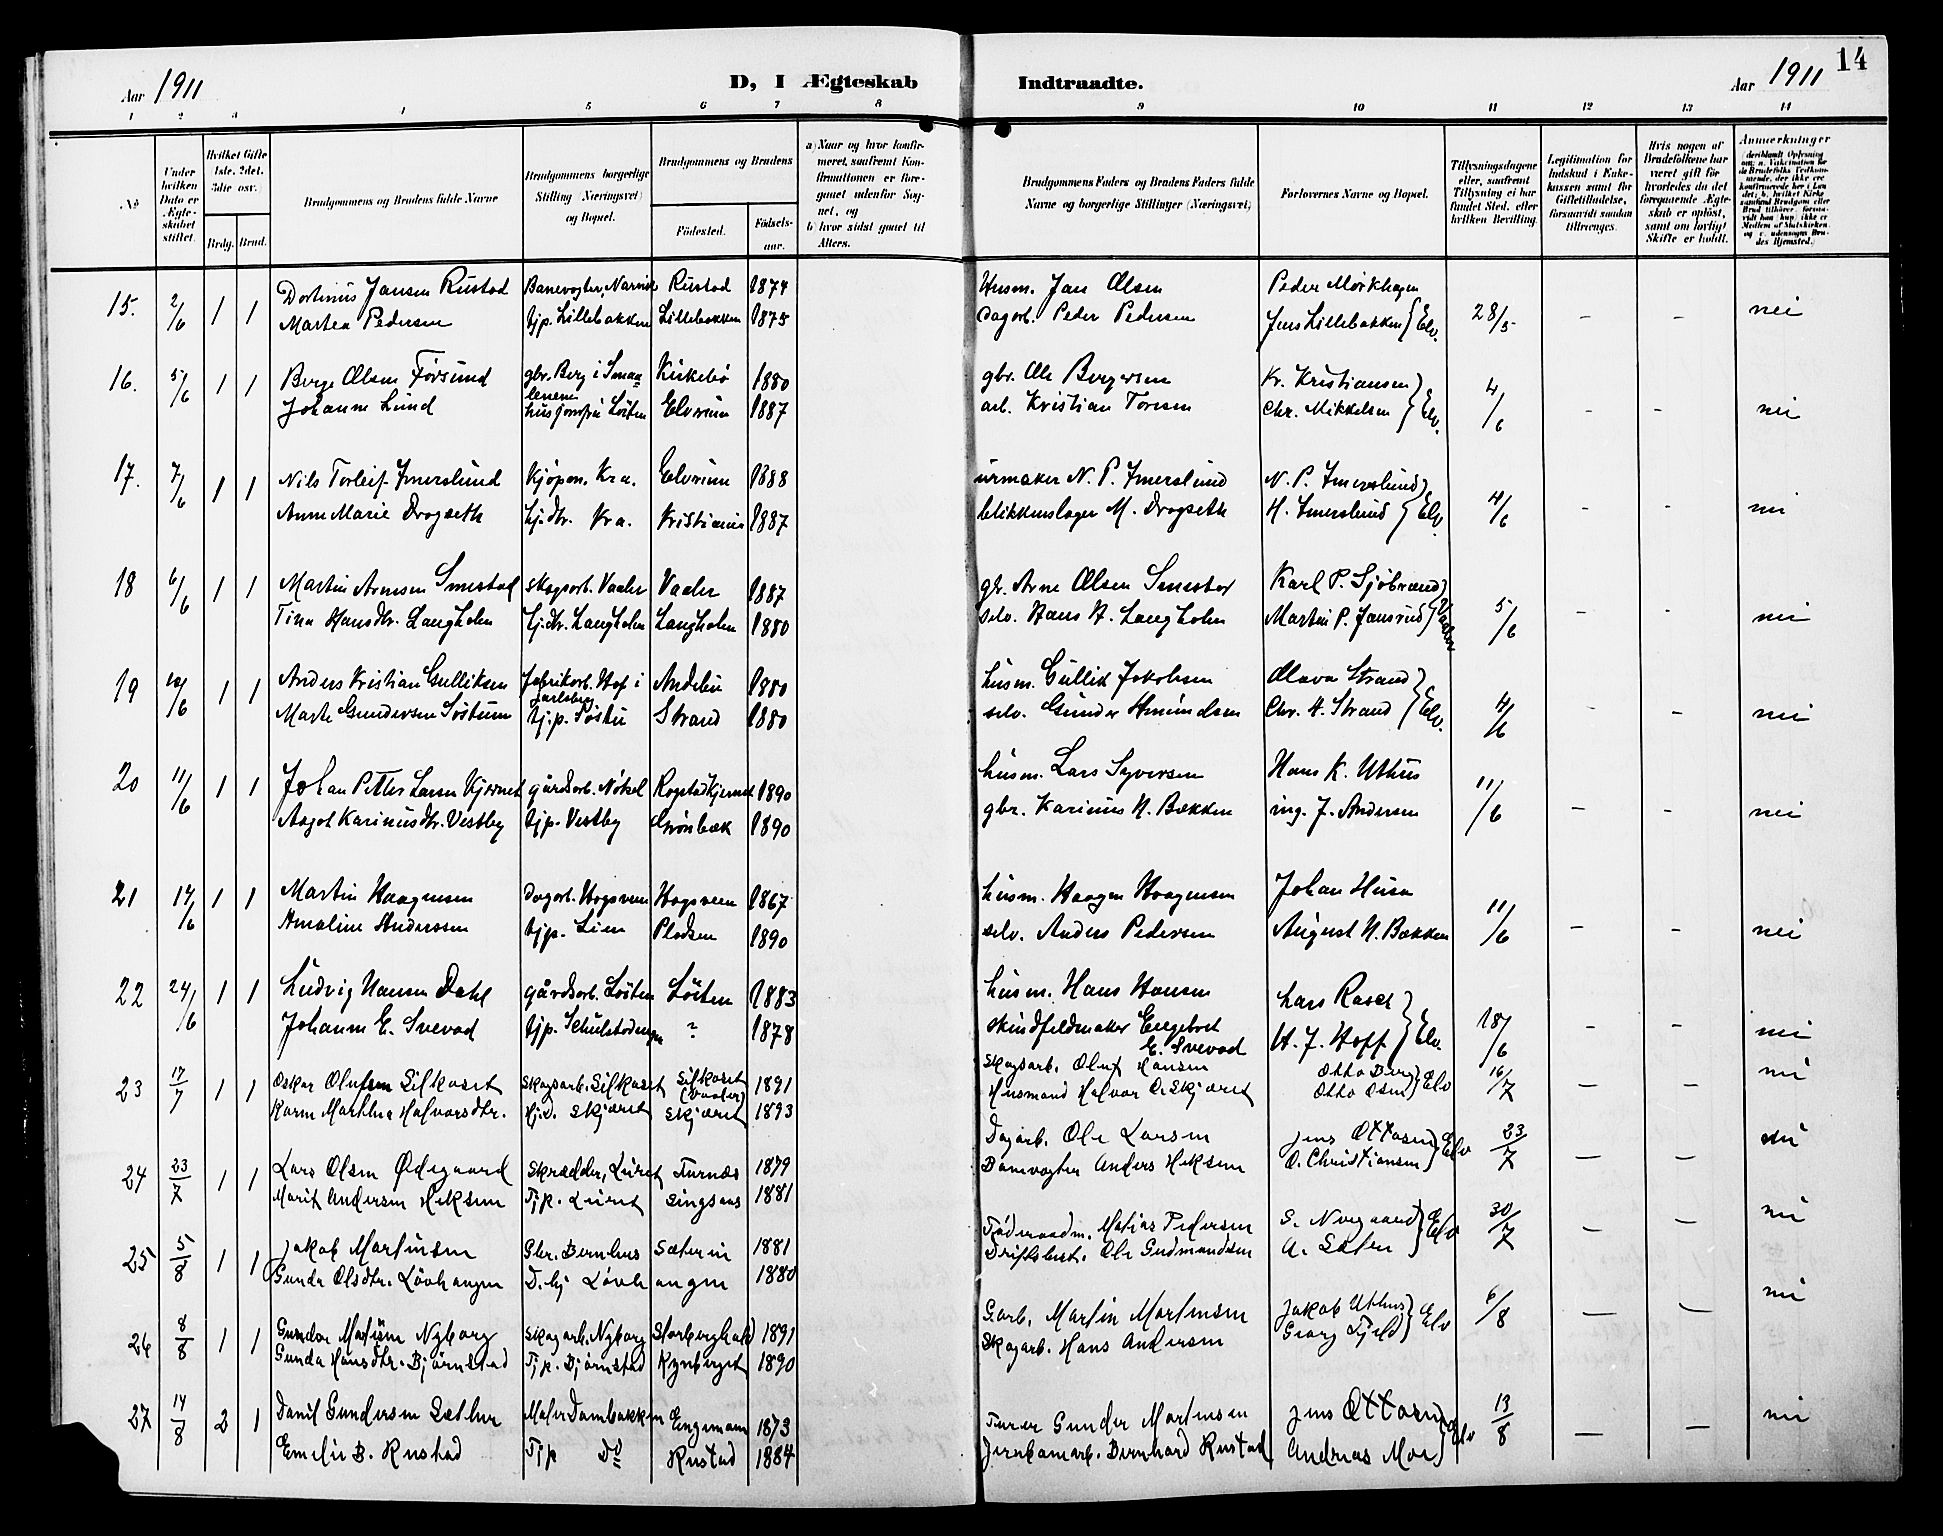 14
Aar 1911
D, I Ægteskab Indtraadte.
Aar 1911
1 2 3 4 5 6 7 8 9 10 11 12 13 14
No
Under hvilken Dato er Ægteskabet stiftet.
Hvilket Gifte 1ste, 2det, 3die osv.
Brdg. Brud.
Brudgommens og Brudens fulde Navne
Brudgommens borgerlige Stilling (Næringsvei) og Bopæl.
Brudgommens og Brudens
Fødested.
Fødselsaar.
a) Naar og hvor konfirmeret, saafremt Konfirmationen er foregaaet udenfor Sognet, og
b) hvor sidst gaaet til Alters.
Brudgommens Faders og Brudens Faders fulde Navne og borgerlige Stillinger (Næringsvei)
Forlovernes Navne og Bopæl.
Tillysningsdagene eller, saafremt Tillysning ei har fundet Sted, efter hvilken Bevilling.
Legitimation for Indskud i Enkekassen samt for Giftetilladelse, forsaavidt saadan tiltrænges.
Hvis nogen af Brudefolkene har været gift før hvorledes da det foregaaende Ægteskab er opløst, samt om lovligt Skifte er holdt.
Anmerkninger
15. 2/6 1 1 Dortinus Jansen Rustad Banevogter, Narvik Rustad 1874 Husm. Jan Olsen Peder Mørkhagen
Martea Pedersen tjp. Lillebakken Lillebakken 1875 Dagarb. Peder Pedersen Jens Lillebakken } Elv. 28/5 - - nei
16. 5/6 1 1 Berge Olsen Førsund gbr. Berg i Smaalenene Kirkebø 1880 gbr. Ole Bergersen Kr. Kristiansen
Johanne Lund husjomfru Løiten Elverum 1887 arb. Kristian Toresen Chr. Mikkelsen } Elv. 4/6 - - nei
17. 7/6 1 1 Nils Torleif Imerslund Kjøpm. Kra. Elverum 1888 urmaker N. P. Imerslund N. P. Imerslund
Anne Marie Drogseth hj.dtr. Kra. Kristiania 1887 blikkenslager M. Drogseth H. Imerslund } Elv. 4/6 - - nei
18 6/6 1 1 Martin Arnesen Smestad skogsarb. Vaaler Vaaler 1887 gbr. Arne Olsen Smestad Karl P. Sjøbrænd
Tina Hansdtr. Langholen hj.dtr. Langholen Langholen 1880 selv. Hans H. Langholen Martin P. Jansrud } Vaaler 5/6 - - nei
19 10/6 1 1 Anders Kristian Gulliksen fabrikarb. Hof i Jarlsberg Andebu 1880 husm. Gullik Jakobsen Olava Strand
Marte Gundersen Søstuen tj.p. Søstu Strand 1880 selv. Gunder Amundsen Chr. H. Strand } Elv. 4/6 - - nei
20 11/6 1 1 Johan Petter Larsen Kjernet gårdsarb. Nökel Rogstadkjernet 1890 husm. Lars Syversen Hans K. Uthus
Aagot Karinusdtr. Vestby tjp. Vestby Grönbæk 1890 gbr. Karinus H. Bækken ing. J. Andersen 11/6 - - nei
21 14/6 1 1 Martin Haagensen Dagarb. Hogsveen Hogsveen 1867 husm. Haagen Haagensen Johan Husa
Amaline Andersen tjp. Lien Pladsen 1890 selv. Anders Pedersen August H. Bækken 11/6 - - nei
22 24/6 1 1 Ludvig Hansen Dahl gårdsarb. Löiten Löiten 1883 husm. Hans Hansen Lars Raset
Johanne E. Svevad tjp. ? 1878 skindfeldmaker Engebret E. Svevad H. J. Hoff } Elv. 18/6 - - nei
23 17/7 1 1 Oskar Olufsen Silkoset Skogsarb. Silkoset Silkoset (Vaaler) 1891 Skogsarb. Oluf Hansen Otto Berg
Karen Marthea Halvorsdtr. Hj.d. Skjæret Skjæret 1893 Husmand Halvor O. Skjæret Otto Osen } Elv 16/7 - - nei
24 23/7 1 1 Lars Olsen Ødegaard Skrædder, Luret Furnæs 1879 Dagarb. Ole Larsen Jens Ottosen
Marit Andersen Heksem Tjp. Luret Singsaas 1881 Banevogter Anders Heksem O. Christiansen } Elv 23/7 - - nei
25 5/8 1 1 Jakob Martinsen Gbr. Bernhus Sæterin 1881 Föderaadm. Matias Pedersen S. Norgaard
Gunda Olsdtr. Lövhaugen D. hj Lövhaugen 1880 Driftsbest. Ole Gudmundsen A. Sæter } Elv 30/7 - - nei
26 8/8 1 1 Gunder Matisen Nyborg Skogarb. Nyborg Storberghald 1891 G.arb. Martin Martinsen Jakob Uthus
Gunda Hansdtr. Bjørnstad Tjp. Bjørnstad Kynberget 1890 Skogarb. Hans Andersen Georg Fjeld } Elv 6/8 - - nei
27 14/8 2 1 Danil Gundersen Sæther Maler Dambakken Engemoen 1873 Gunder Martinsen Jens Ottosen
Emelie B. Rustad Tjp Do Rustad 1884 Jernbanearb. Bernhard Rustad Andreas Moe } Elv 13/8 - - nei